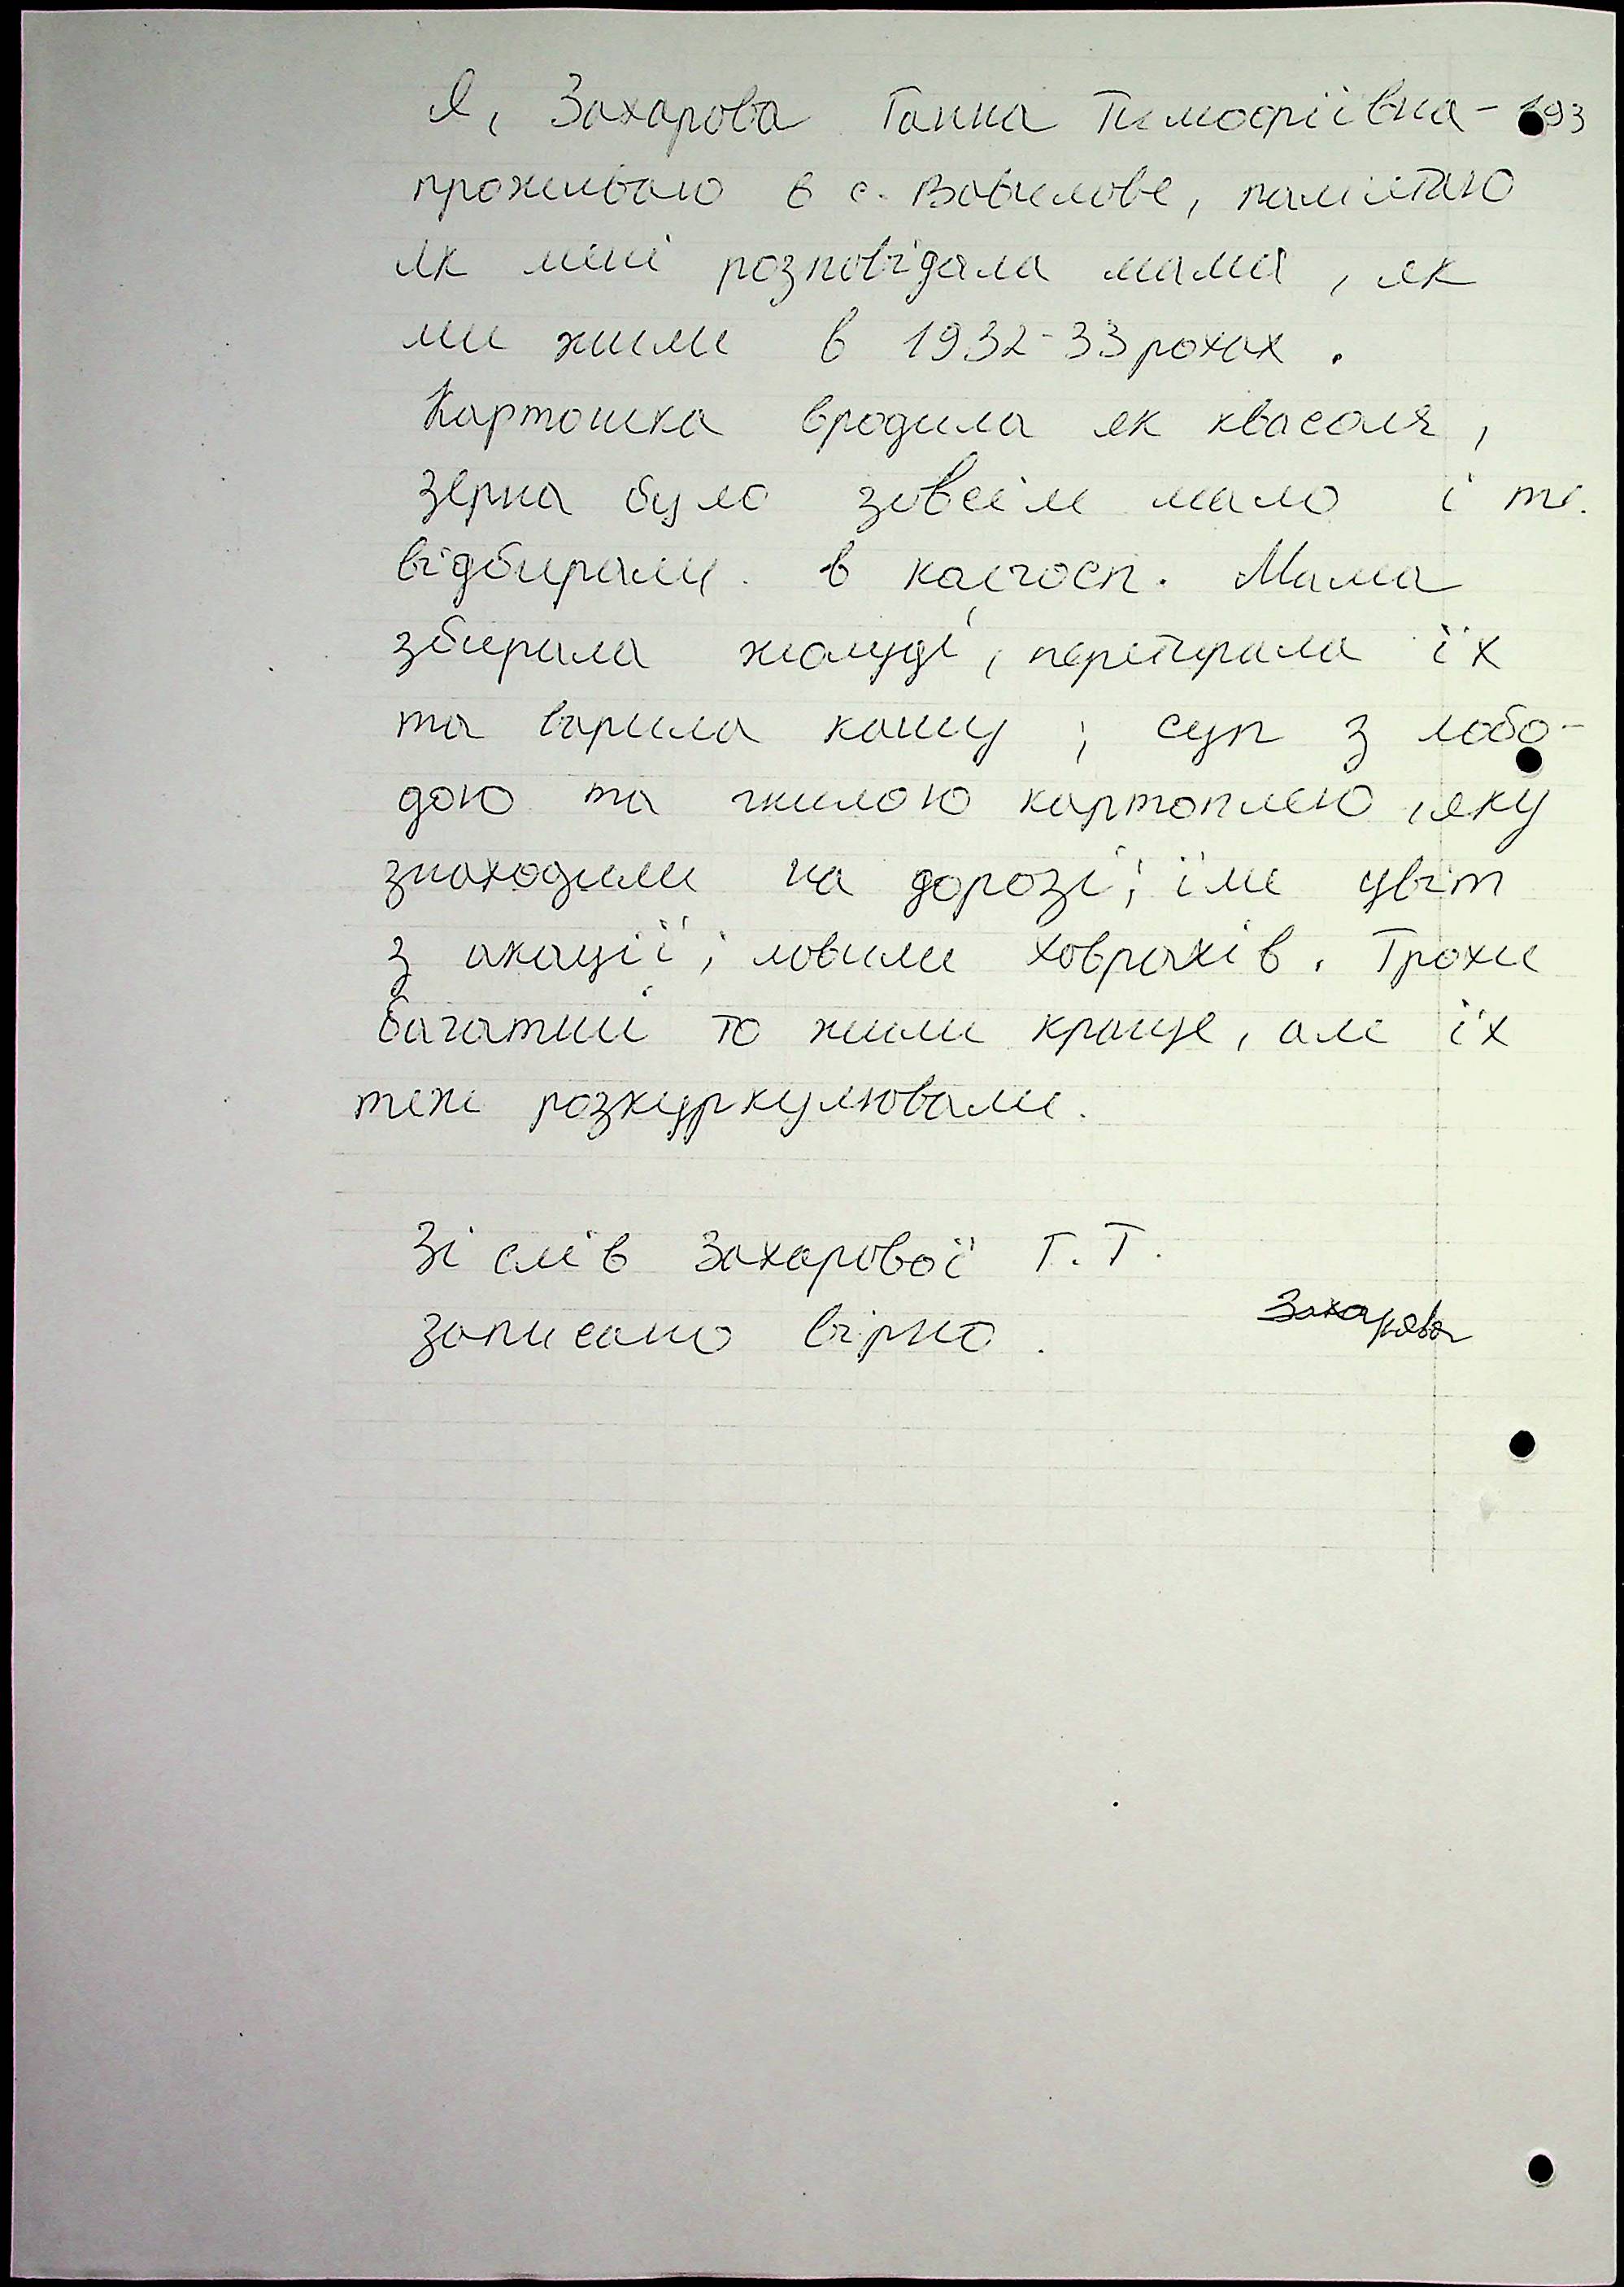 Я, Захарова Ганна Тимофіївна - 193
проживаю в с. Вавилове, памятаю
як мені розповідала мама, як
ми жили в 1932-33 роках.
Картошка вродила як квасоля,
зерна було зовсім мало і те
відбирали в колгосп. Мама
збирала жолуді, перетирала їх
та варила кашу; суп з лобо-
дою та гнилою картоплею, яку
знаходили на дорозі; їли цвіт
з акації; ловили ховрахів. Трохи
багатші то жили краще, але їх
теж розкуркулювали.
Зі слів Захарової Г.Т.
записано вірно. Захарова